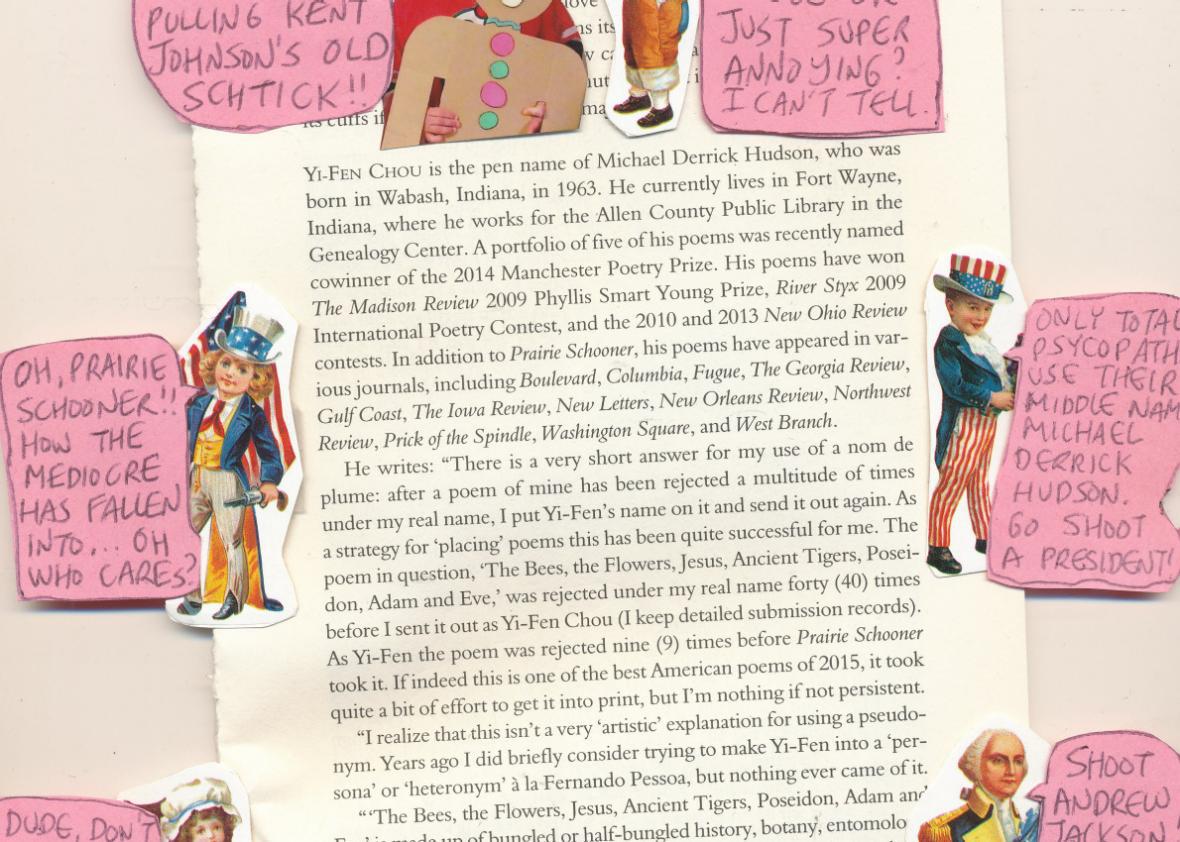 PULLING KENT
JOHNSON'S OLD
SCHTICK!!
JUST SUPER
ANNOYING?
I CAN'T TELL.
love
its cuffs if
YI-FEN CHOU is the pen name of Michael Derrick Hudson, who was
born in Wabash, Indiana, in 1963. He currently lives in Fort Wayne,
Indiana, where he works for the Allen County Public Library in the
Genealogy Center. A portfolio of five of his poems was recently named
cowinner of the 2014 Manchester Poetry Prize. His poems have won
The Madison Review 2009 Phyllis Smart Young Prize, River Styx 2009
International Poetry Contest, and the 2010 and 2013 New Ohio Review
contests. In addition to Prairie Schooner, his poems have appeared in var-
ious journals, including Boulevard, Columbia, Fugue, The Georgia Review,
Gulf Coast, The Iowa Review, New Letters, New Orleans Review, Northwest
Review, Prick of the Spindle, Washington Square, and West Branch.
He writes: “There is a very short answer for my use of a nom de
plume: after a poem of mine has been rejected a multitude of times
under my real name, I put Yi-Fen’s name on it and send it out again. As
a strategy for ‘placing’ poems this has been quite successful for me. The
poem in question, ‘The Bees, the Flowers, Jesus, Ancient Tigers, Posei-
don, Adam and Eve,’ was rejected under my real name forty (40) times
before I sent it out as Yi-Fen Chou (I keep detailed submission records).
As Yi-Fen the poem was rejected nine (9) times before Prairie Schooner
took it. If indeed this is one of the best American poems of 2015, it took
quite a bit of effort to get it into print, but I’m nothing if not persistent.
“I realize that this isn’t a very ‘artistic’ explanation for using a pseudo-
nym. Years ago I did briefly consider trying to make Yi-Fen into a ‘per-
sona’ or ‘heteronym’ à la Fernando Pessoa, but nothing ever came of it.
“‘The Bees, the Flowers, Jesus, Ancient Tigers, Poseidon, Adam and
is made up of bungled or half-bungled history, botany, entomolo
OH, PRAIRIE
SCHOONER!!
HOW THE
MEDIOCRE
HAS FALLEN
INTO... OH
WHO CARES?
ONLY TOTAL
PSYCOPATH
USE THEIR
MIDDLE NAM
MICHAEL
DERRICK
HUDSON.
GO SHOOT
A PRESIDENT!
DUDE, DON'T
SHOOT
ANDREW
JACKSON